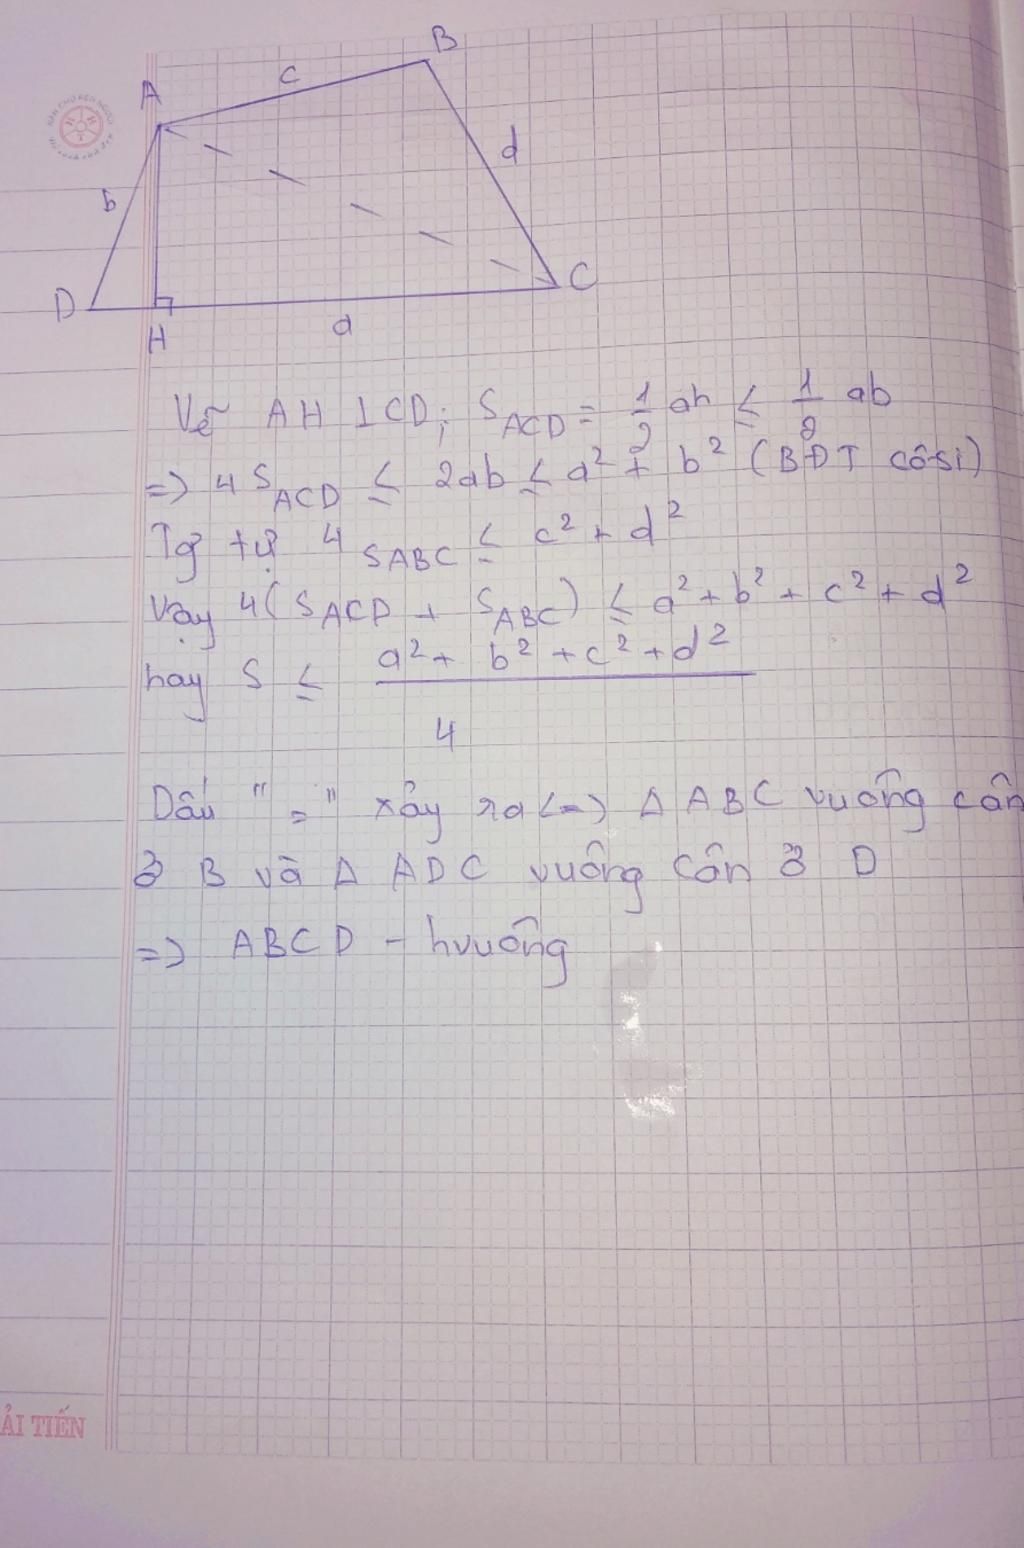 B
c
A
d
b
D
C
H
a
Vẽ AH ⊥ CD; S_ACD = 1/2 ah ≤ 1/2 ab
=> 4 S_ACD ≤ 2ab ≤ a² + b² (BĐT côsi)
Tg tự 4 S_ABC ≤ c² + d²
Vậy 4(S_ACD + S_ABC) ≤ a² + b² + c² + d²
hay S ≤ a² + b² + c² + d²
4
Dấu "=" xảy ra <=> Δ ABC vuông cân
ở B và Δ ADC vuông cân ở D
=> ABCD - hvuông
ẢI TIẾN